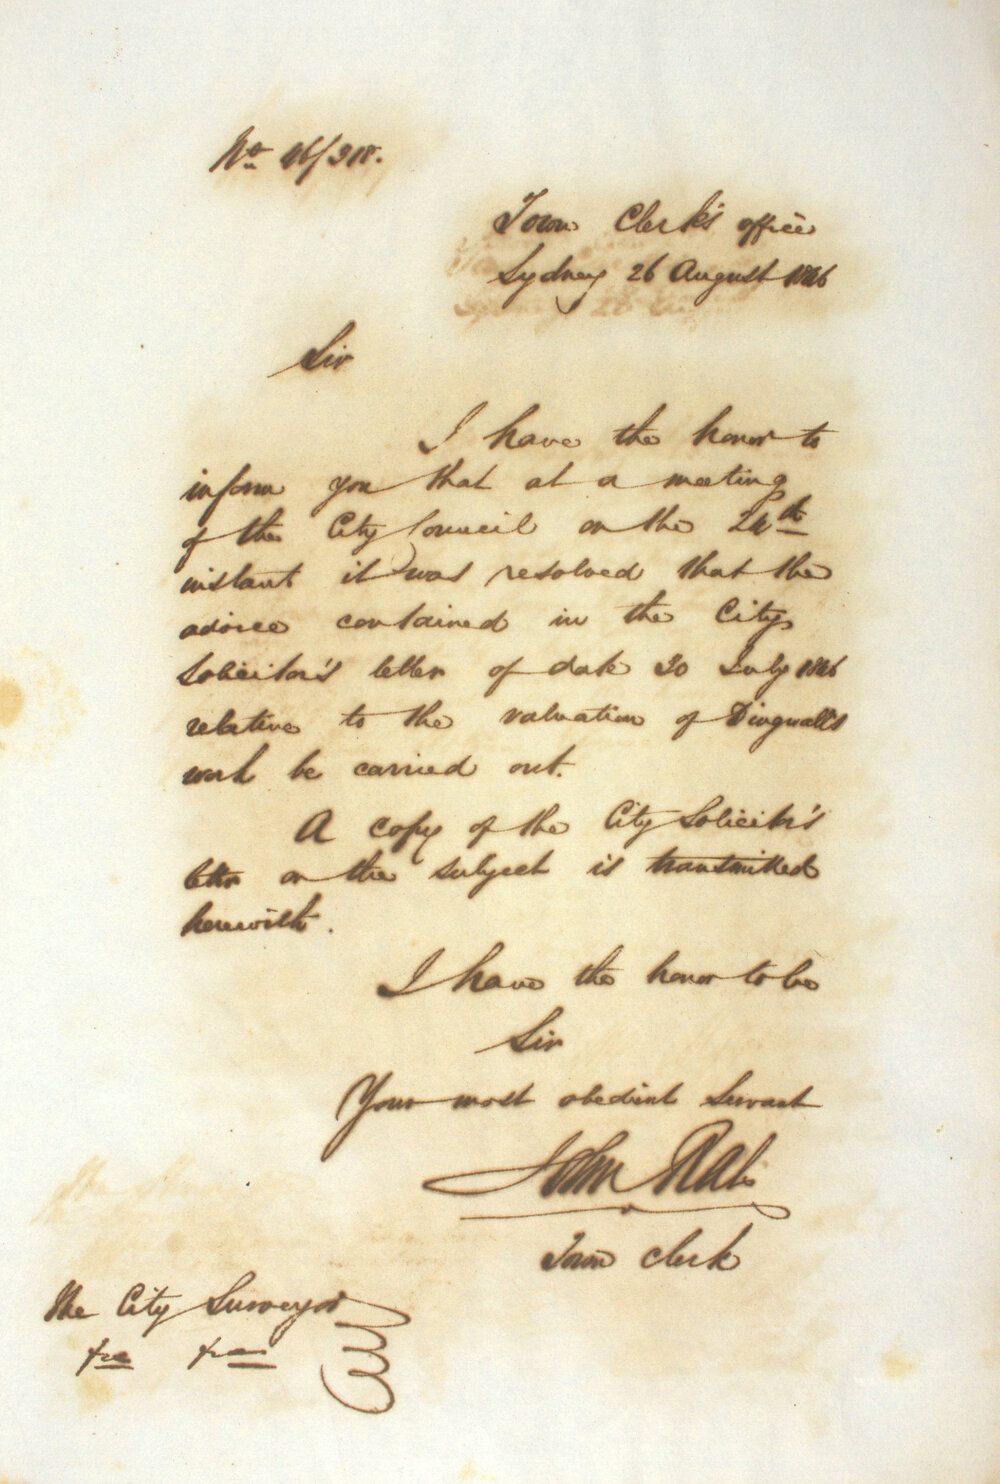 No 46/318.
Town Clerk's office
Sydney 26 August 1846
Sir
I have the honor to
inform you that at a meeting
of the City Council on the 24th
instant it was resolved that the
advice contained in the City
Solicitor's letter of date 30 July 1846
relative to the valuation of Dingwall's
work be carried out.
A copy of the City Solicitor's
letter on the subject is transmitted
herewith.
I have the honor to be
Sir
Your most obedient Servant
John Rae
Town Clerk
The City Surveyor